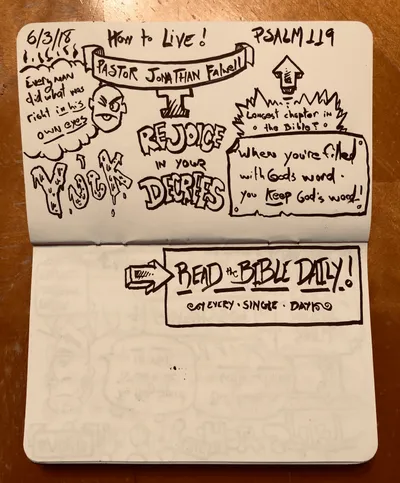 6/3/18 How to Live! PSALM 119
PASTOR JONATHAN Falwell
Every man
did what was
right in his
own eyes
YUCK
REJOICE
IN YOUR
DECREES
Longest chapter in
the Bible!
When you're filled
with God's word.
you Keep God's word!
READ the BIBLE DAILY!
EVERY · SINGLE · DAY